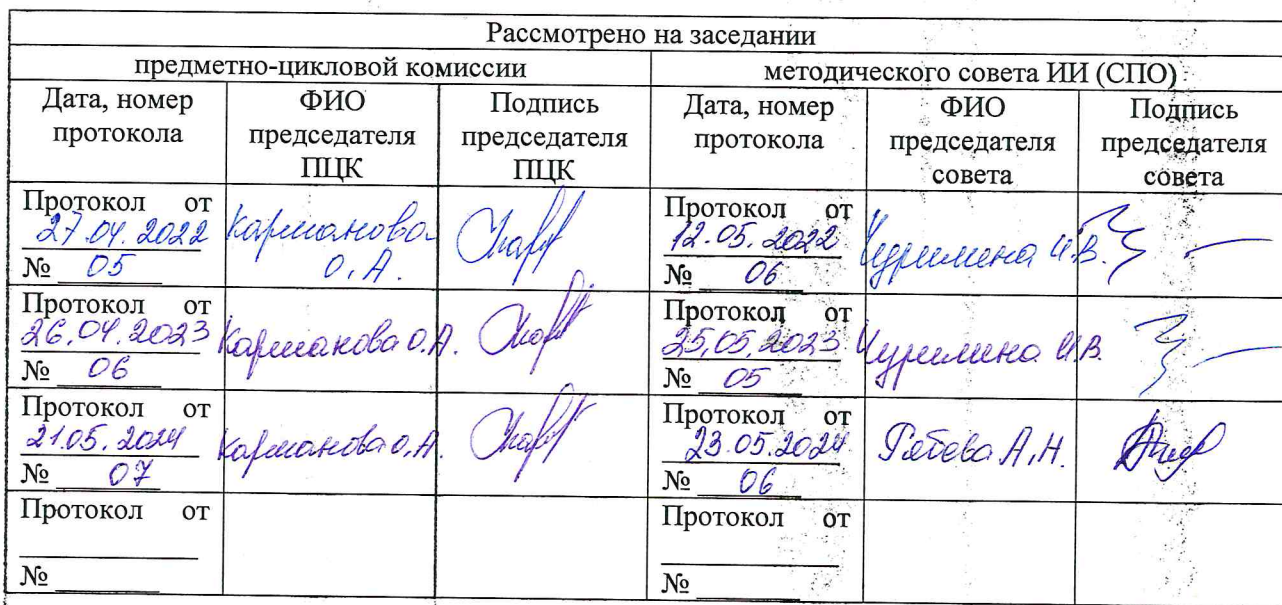 Рассмотрено на заседании
предметно-цикловой комиссии
методического совета ИИ (СПО)
Дата, номер
протокола
ФИО
председателя
ПЦК
Подпись
председателя
ПЦК
Дата, номер
протокола
ФИО
председателя
совета
Подпись
председателя
совета
Протокол от
27.04.2022
№ 05
Карманова
О.А.
Протокол от
12.05.2022
№ 06
И.В.
Протокол от
26.04.2023
№ 06
Карманова О.А.
Протокол от
25.05.2023
№ 05
И.В.
Протокол от
21.05.2024
№ 07
Карманова О.А.
Протокол от
23.05.2024
№ 06
А.Н.
Протокол от
№
Протокол от
№